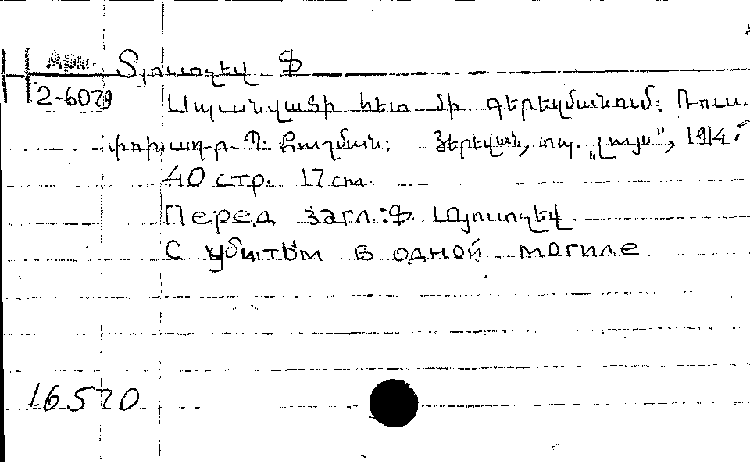 Арм.
2-6079
Տյուտչեվ Ֆ
Սպանվածի հետ մի գերեզմանում: Ռուս.
փոխադր. Պ. Երեվան, տպ. „Լույս", 1914
40 стр. 17 см.
Перед загл.: Ф. Տյուտչեվ
С убитым в одной могиле
16570